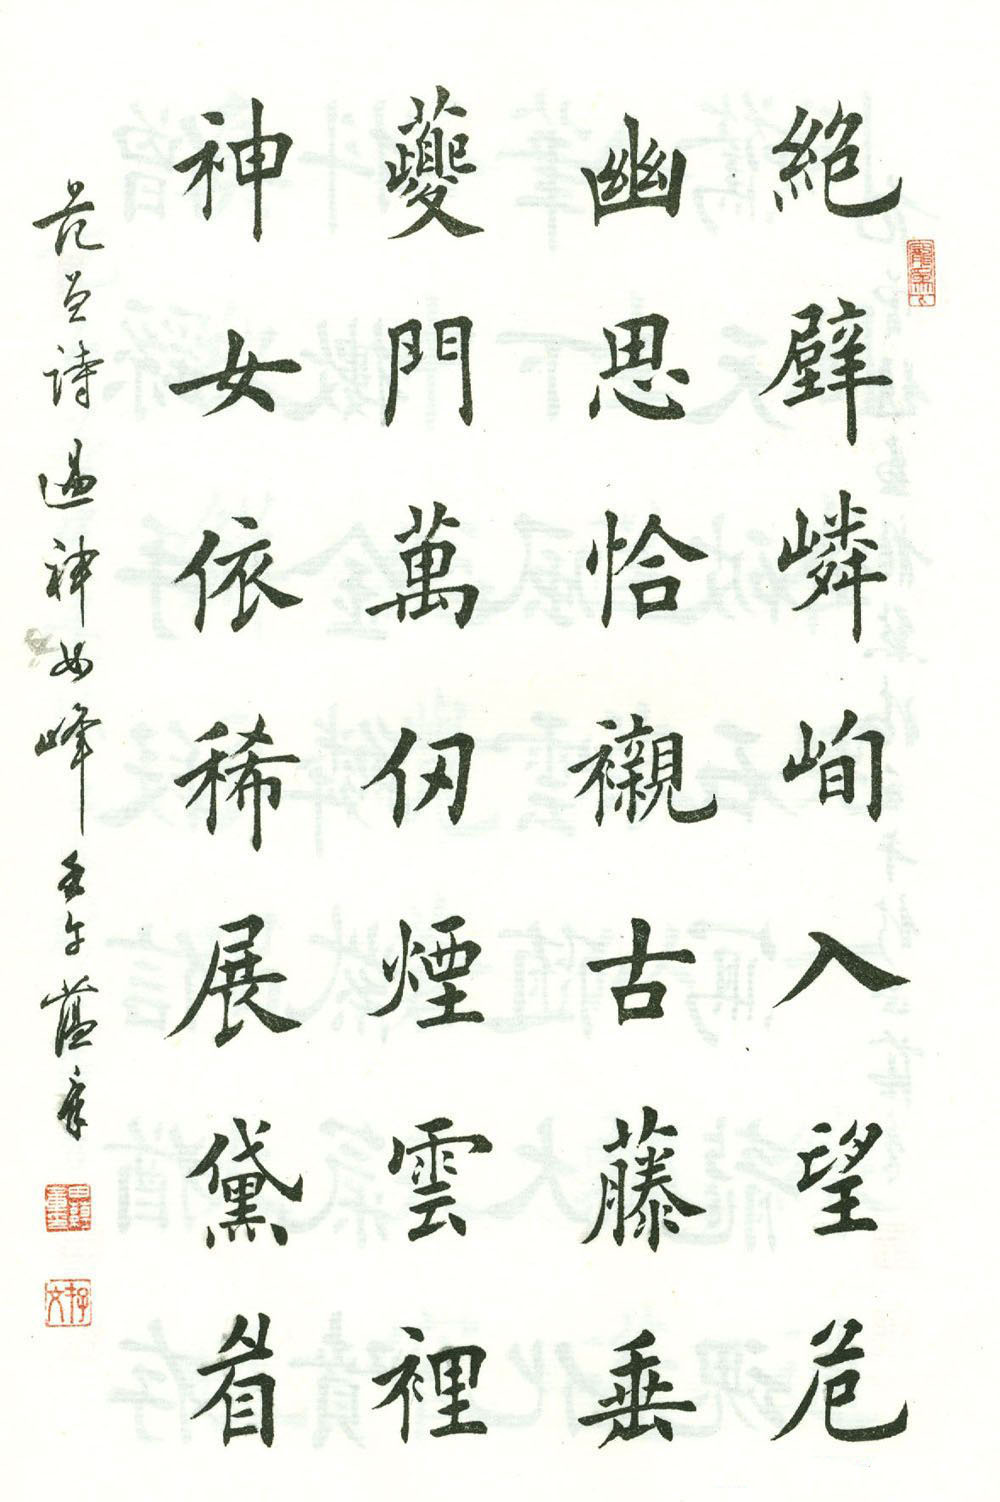 絶壁嶙峋入望危
幽思恰襯古藤垂
蘷門萬仞煙雲裡
神女依稀展黛眉
范曾詩過神女峰壬午蘊章